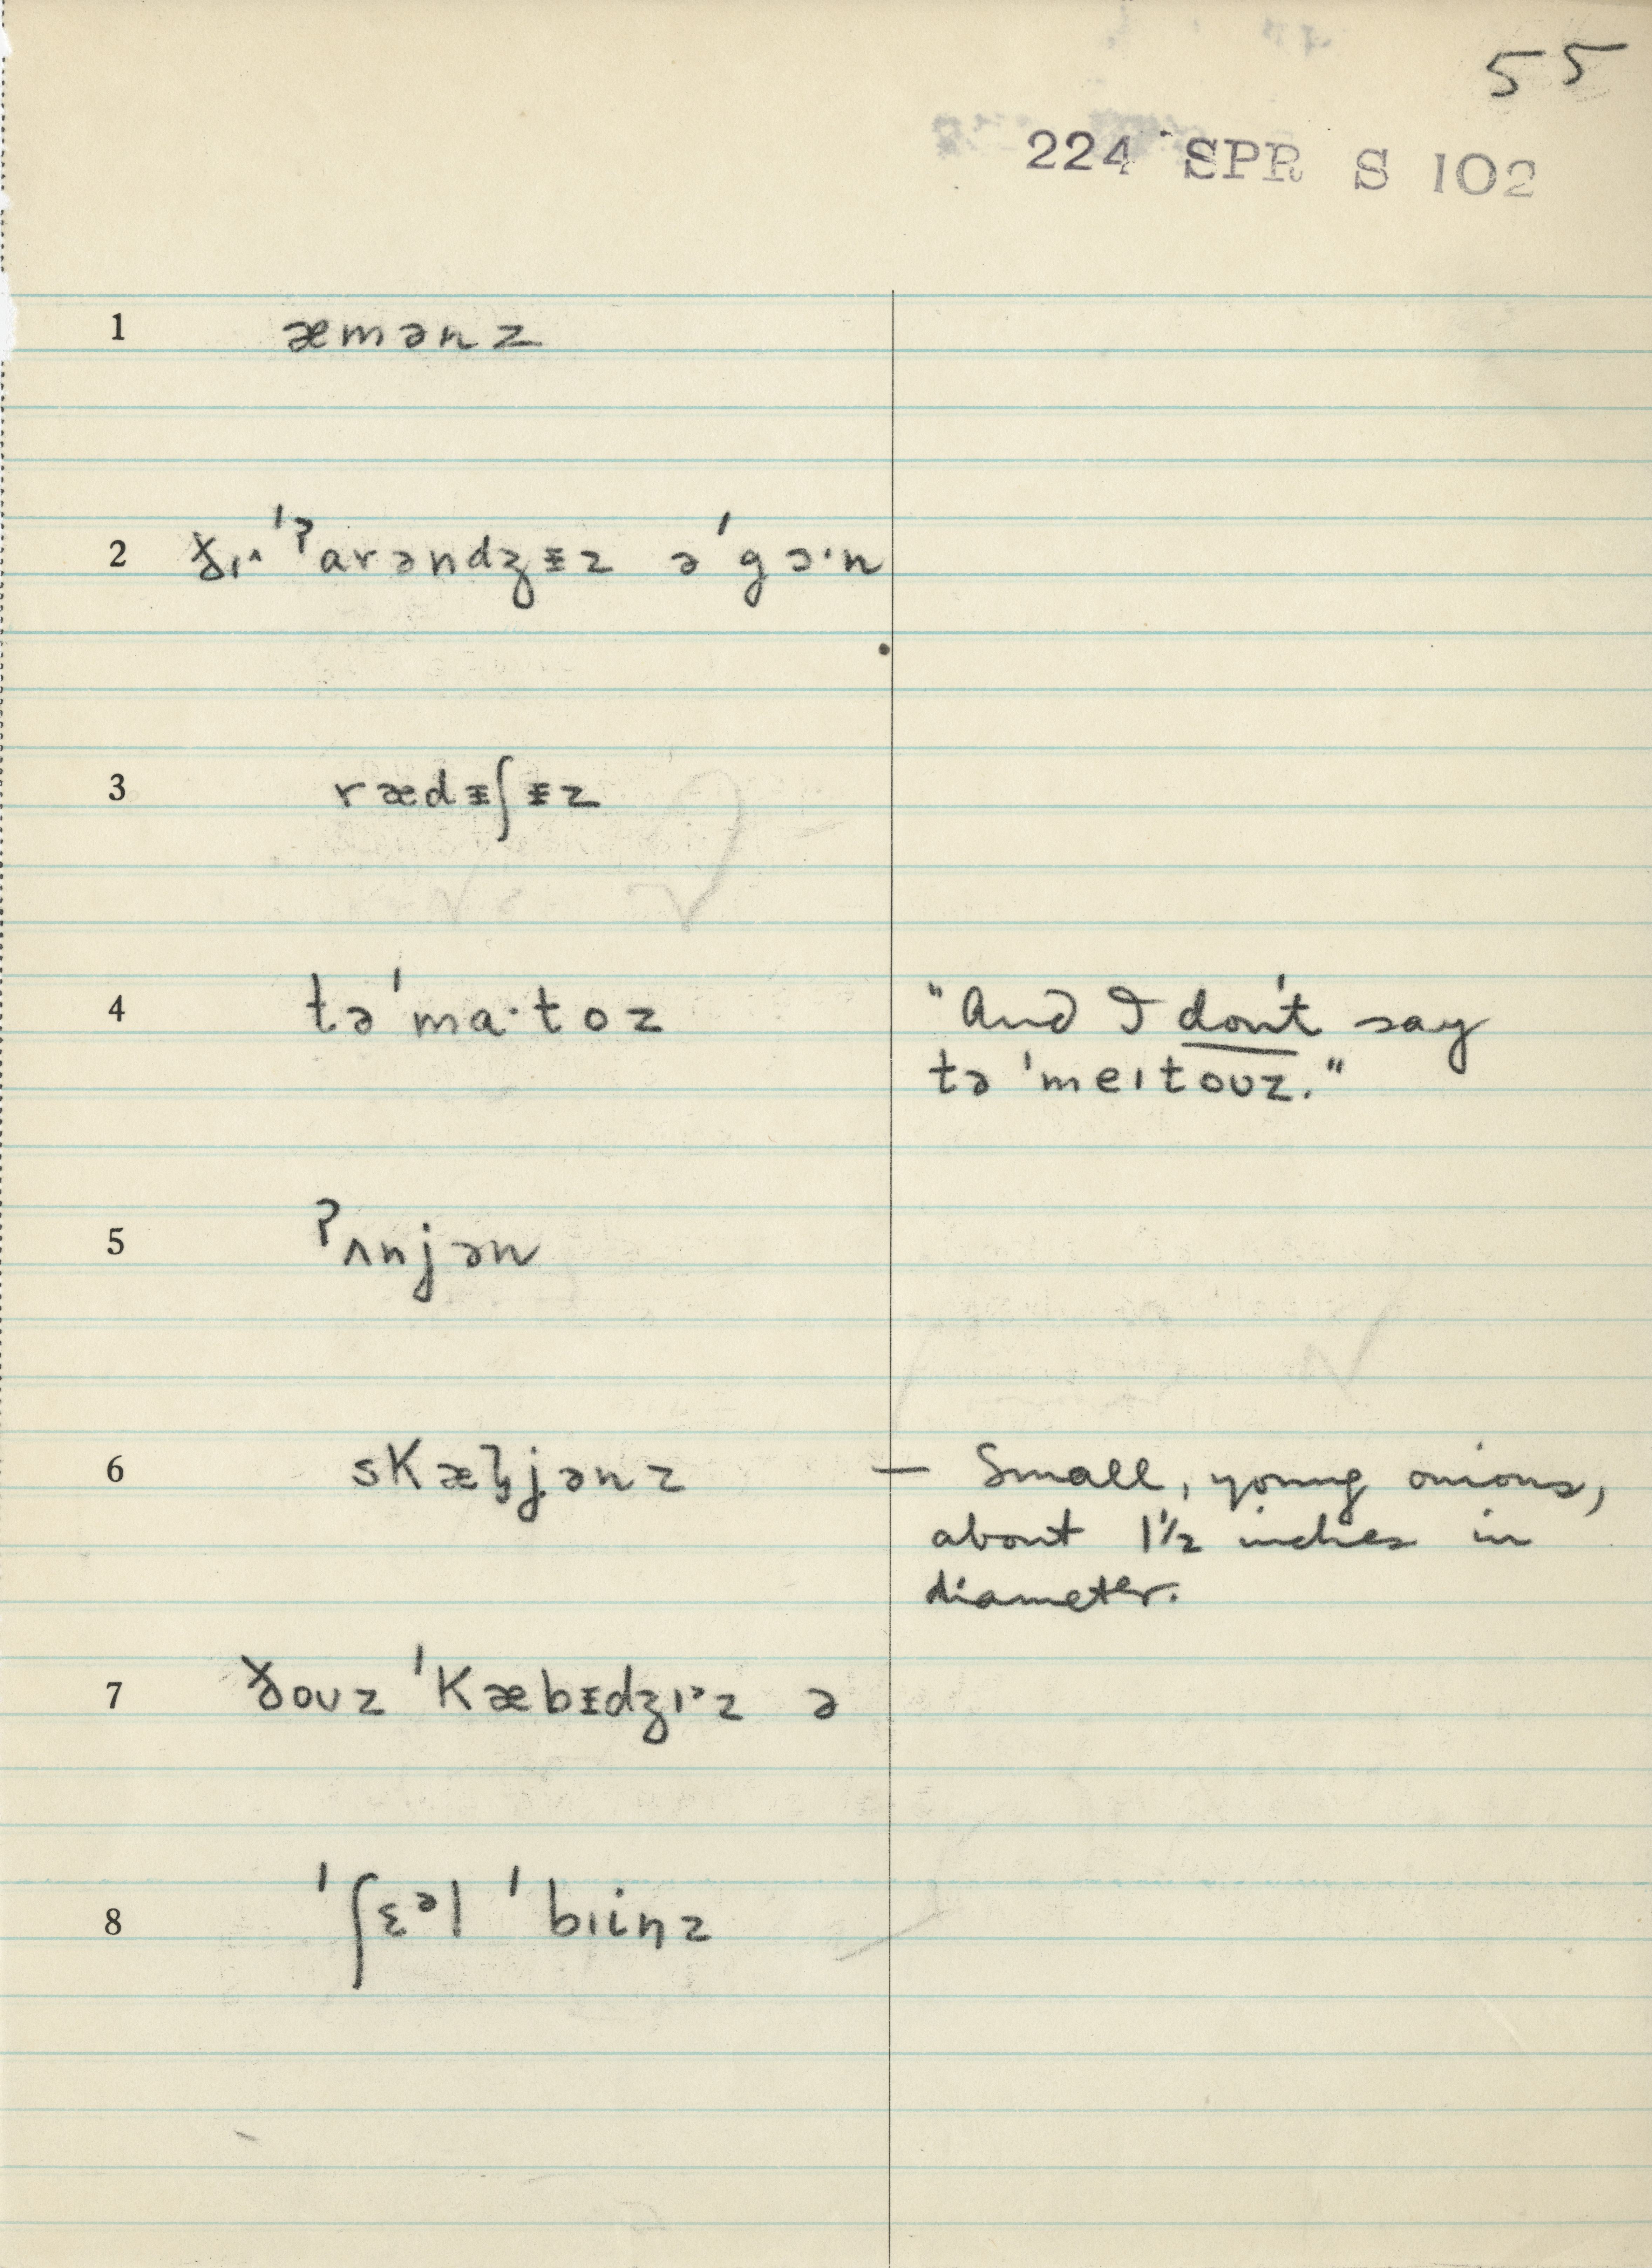 55
224 SPR S 102
1 æmənz
2 ð̵ɪ^ˈˀarəndʒɪ̵z əˈgɔ·n
3 rædɪ̵ʃɪ̵z
4 təˈma·toz
"And I don't say
tə ˈmeɪtoʊz."
5 ˀʌnjən
6 skæl̡jənz
— Small, young onions,
about 1½ inches in
diameter.
7 ðoʊz ˈkæbɪ̵dʒɪ˃z ə
8 ˈʃɛᵊl ˈbɪinz